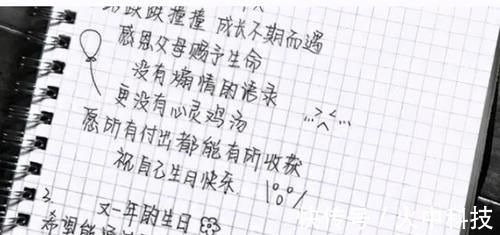 跌跌撞撞 成长不期而遇
感恩父母赐予生命
没有煽情的语录
更没有心灵鸡汤
愿所有付出都能有所收获
祝自己生日快乐
3.
又一年的生日
希望能
快传号/火中科技